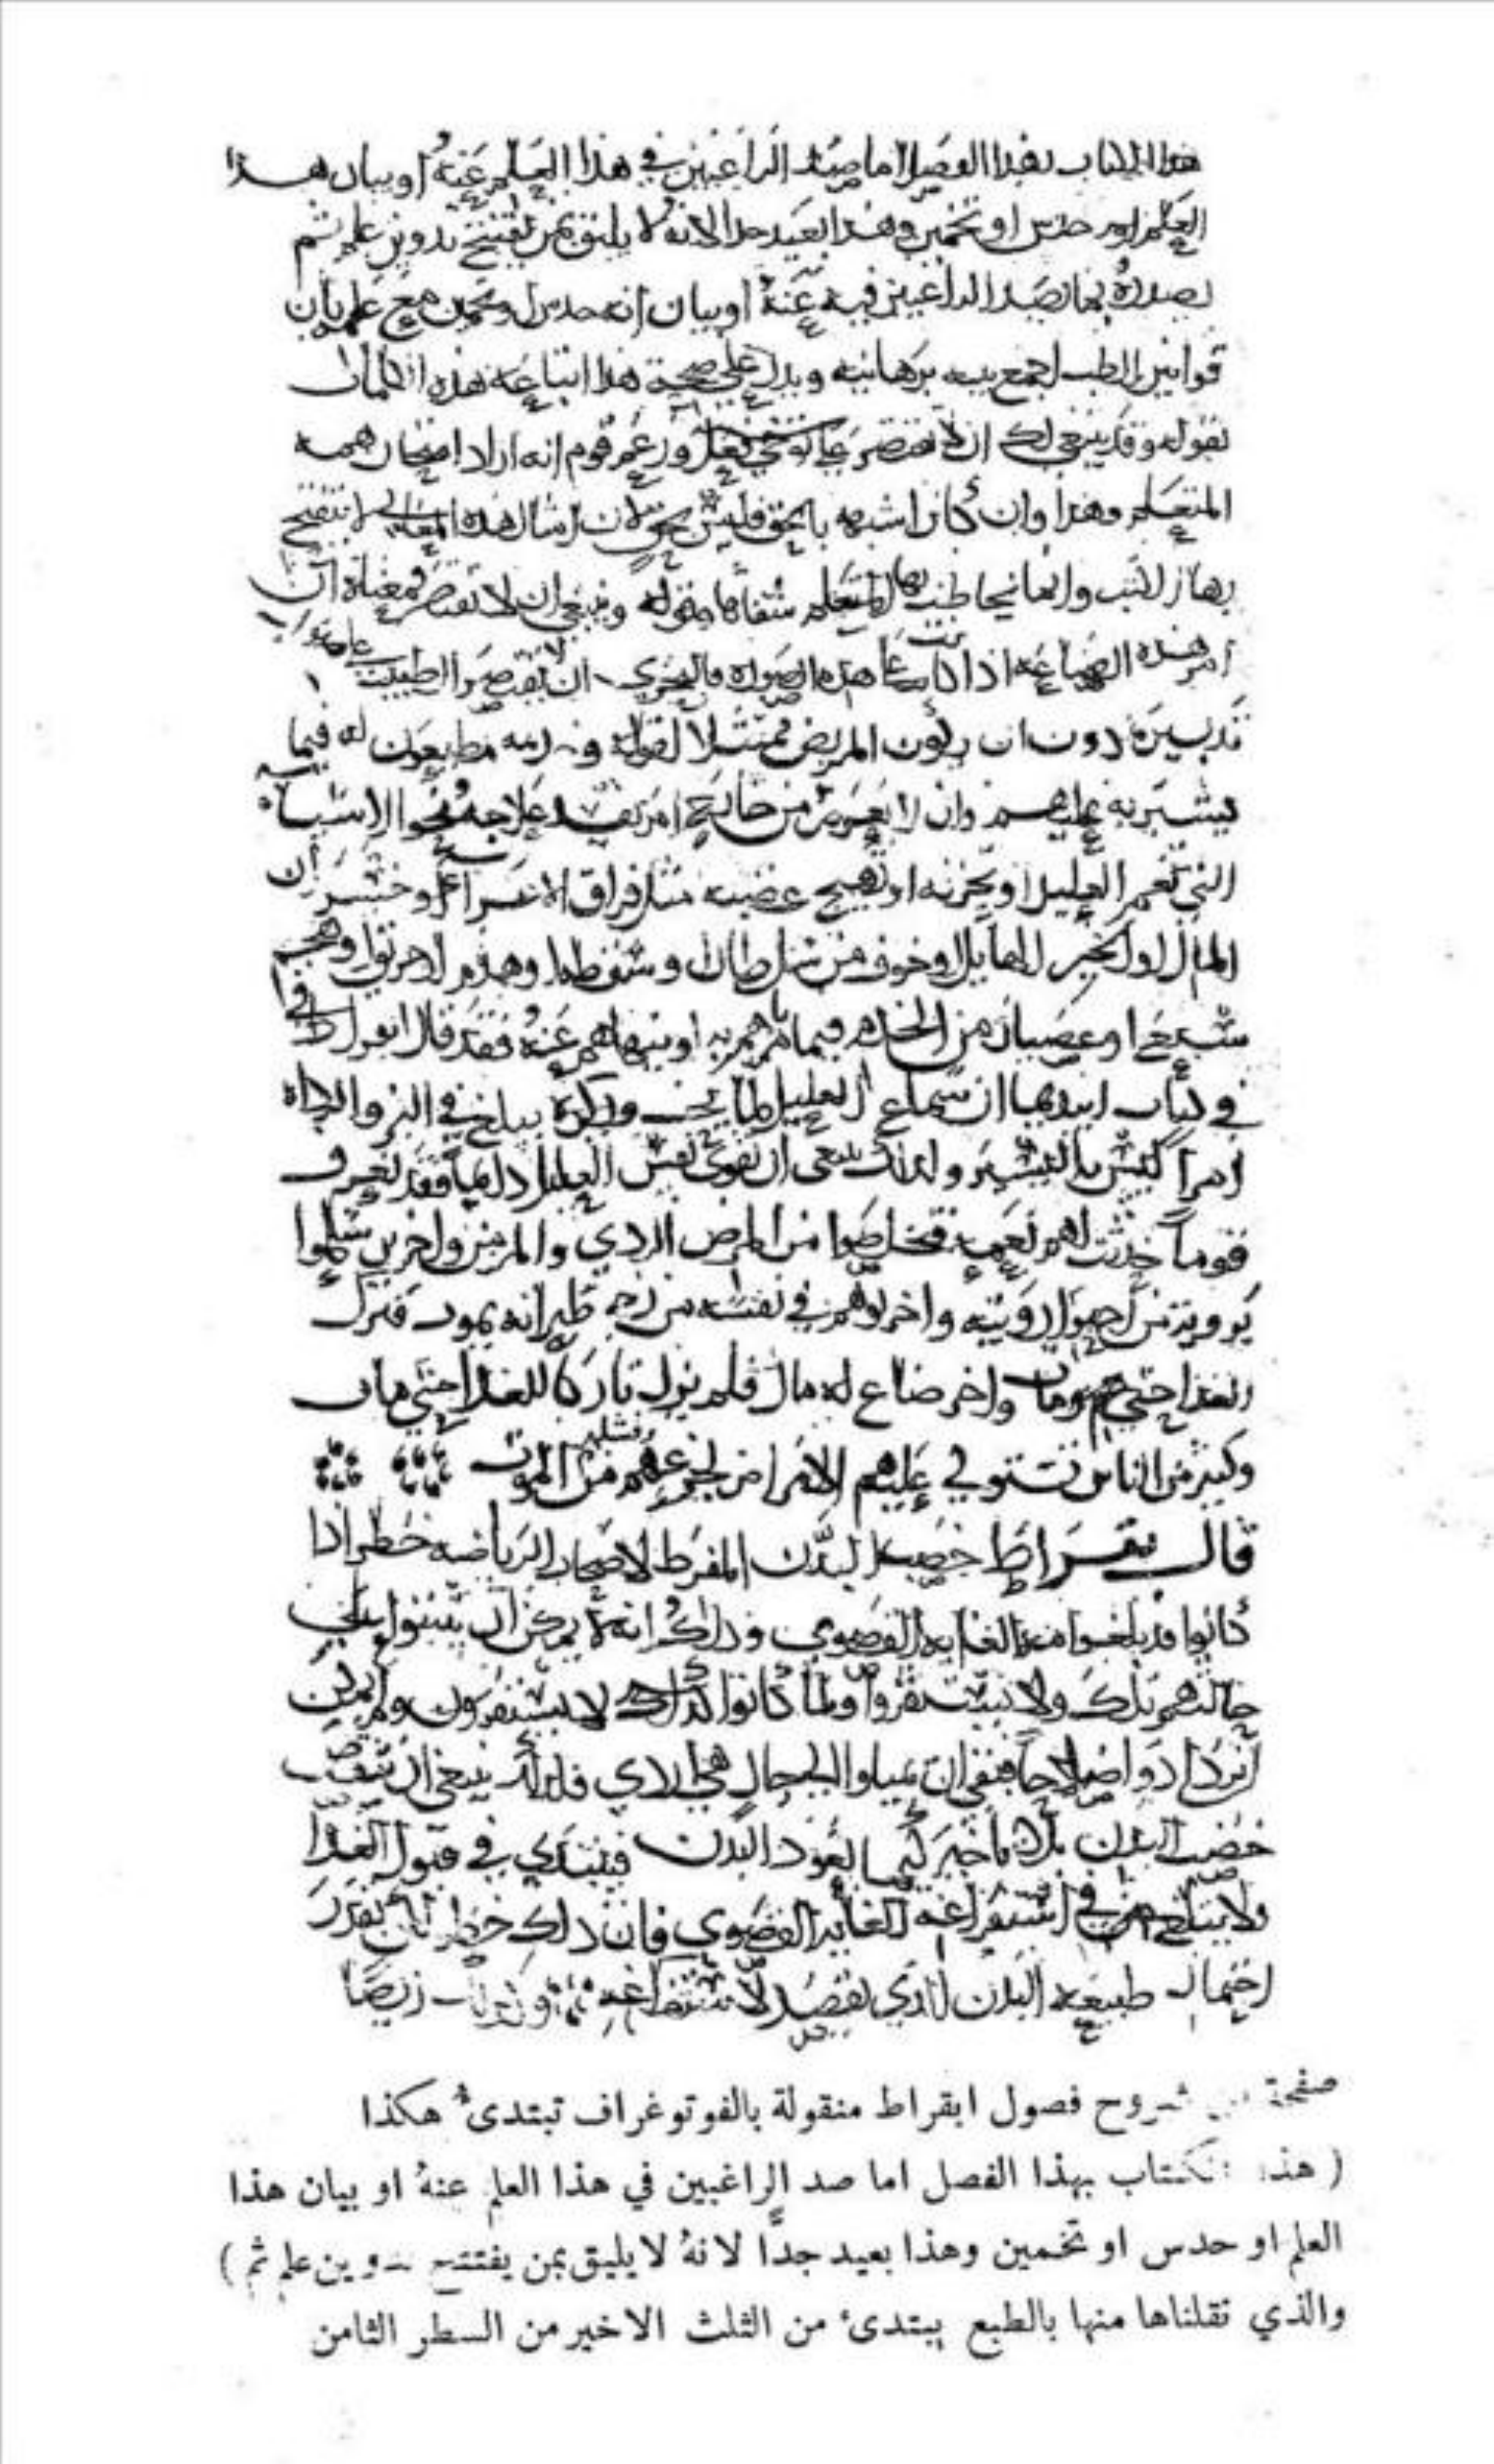 هذا الكتاب بهذا الفصل اما صد الراغبين في هذا العلم عنه او بيان هذا
العلم او حدس او تخمين وهذا بعيد جدا لانه لا يليق بمن يفتتح تدوين علم ثم
يصدره بما يصد الراغبين فيه عنه او بيان انه حدس او تخمين مع علمه بان
قوانين الطب اجمع برهانيه ويدل علي صحة هذا اتباعه هذه
بقوله وقد ينبغي لك ان لا تقتصر علي توخي فعل وزعم قوم انه اراد امتحان همه
المتعلم وهذا وان كان اشبه بالحق فليس بحق لان امثال هذه لا تفتتح
بها الكتب وانما يخاطب بها المتعلم شفاها وقوله وينبغي ان لا تقتصر معناه ان
امر هذه الصناعه اذا كانت علي هذه الصوره فالبحري ان لا يقتصر الطبيب علي صواب
تدبيره دون ان يكون المريض ممتثلا لقوله وخدمه مطيعون له فيما
يشير به عليهم وان لا يعرض من خارج امر يفسد علاجه نحو الاشياء
التي تغم العليل او تحزنه او تهيج غضبه مثل فراق وخسران
المال او الخبر الهايل او خوف من سلطان وسقطه وهدم او حريق او هجم
سبع او عصيان من الخدم فيما يامرهم به او ينهاهم عنه فقد قال ابقراط
في كتاب ابيديميا ان سماع العليل لما يحب وذكره يبلغ في البر والرداه
امرا ليس باليسير ولذلك ينبغي ان تقوي نفس العليل دايما فقد نعرف
قوما حدثت لهم نعمه فتخلصوا من المرض الردي والمزمن واخرين سلموا
برويه من احبوا رويته واخر توهم في نفسه من زحمه طير انه يموت فترك
الغذا حتي مات واخر ضاع له مال فلم يزل تاركا للغذا حتي مات
وكثير من الناس تستولي عليهم الامراض لجزعهم وفشلهم من الموت
قال بقراط خصب البدن المفرط لاصحاب الرياضه خطر اذا
كانوا قد بلغوا منه الغايه القصوي وذلك انه لا يمكن ان يثبتوا علي
حالهم تلك ولا يستقروا ولما كانوا كذلك لا يستقرون ولم يمكن
ان يزدادوا صلاحا فبقي ان يميلوا الي حال هي اردي فلذلك ينبغي ان ينقص
خصب البدن بلا تاخير كيما يعود البدن فيبتدي في قبول الغذا
ولا يبلغ في استفراغه الغايه القصوي فان ذلك خطر لكن بقدر
احتمال طبيعه البدن الذي يقصد لاستفراغه وكذلك ايضا
صفحة من شروح فصول ابقراط منقولة بالفوتوغراف تبتدئ هكذا
( هذا الكتاب بهذا الفصل اما صد الراغبين في هذا العلم عنهُ او بيان هذا
العلم او حدس او تخمين وهذا بعيد جدًّا لانهُ لا يليق بمن يفتتح تدوين علم ثم )
والذي نقلناها منها بالطبع يبتدئ من الثلث الاخير من السطر الثامن